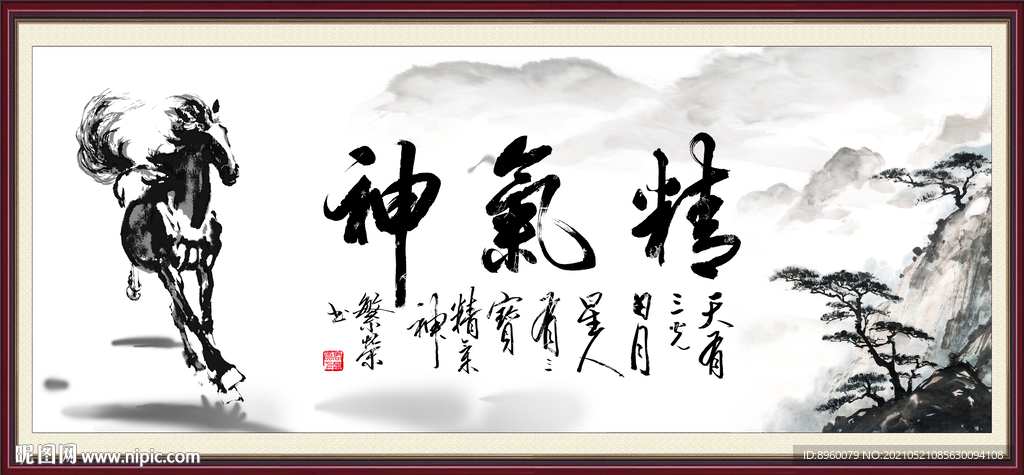 精氣神
天有
三光
日月
星人
有三
寶
精氣
神
繁榮
书
昵图网 www.nipic.com
ID:8960079 NO:20210521085630094108